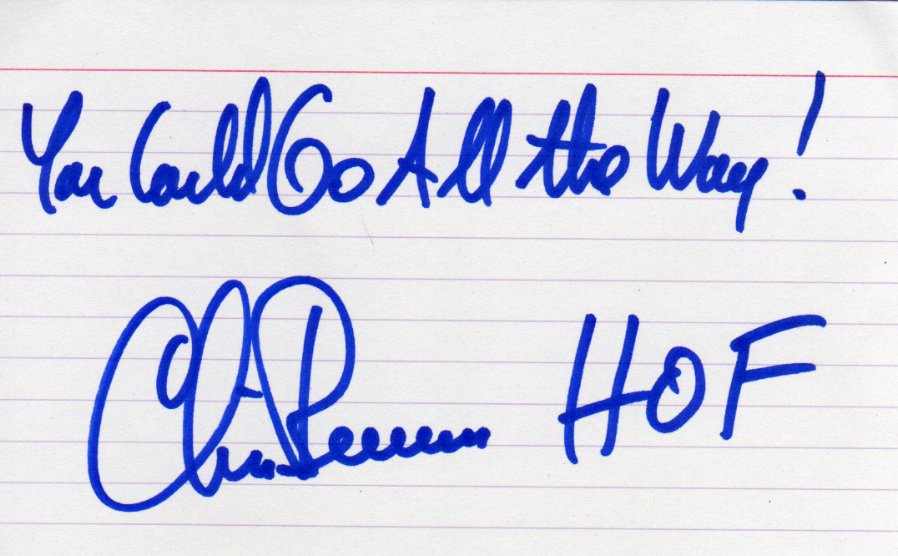 You Could Go All the Way!
Chris Berman HOF